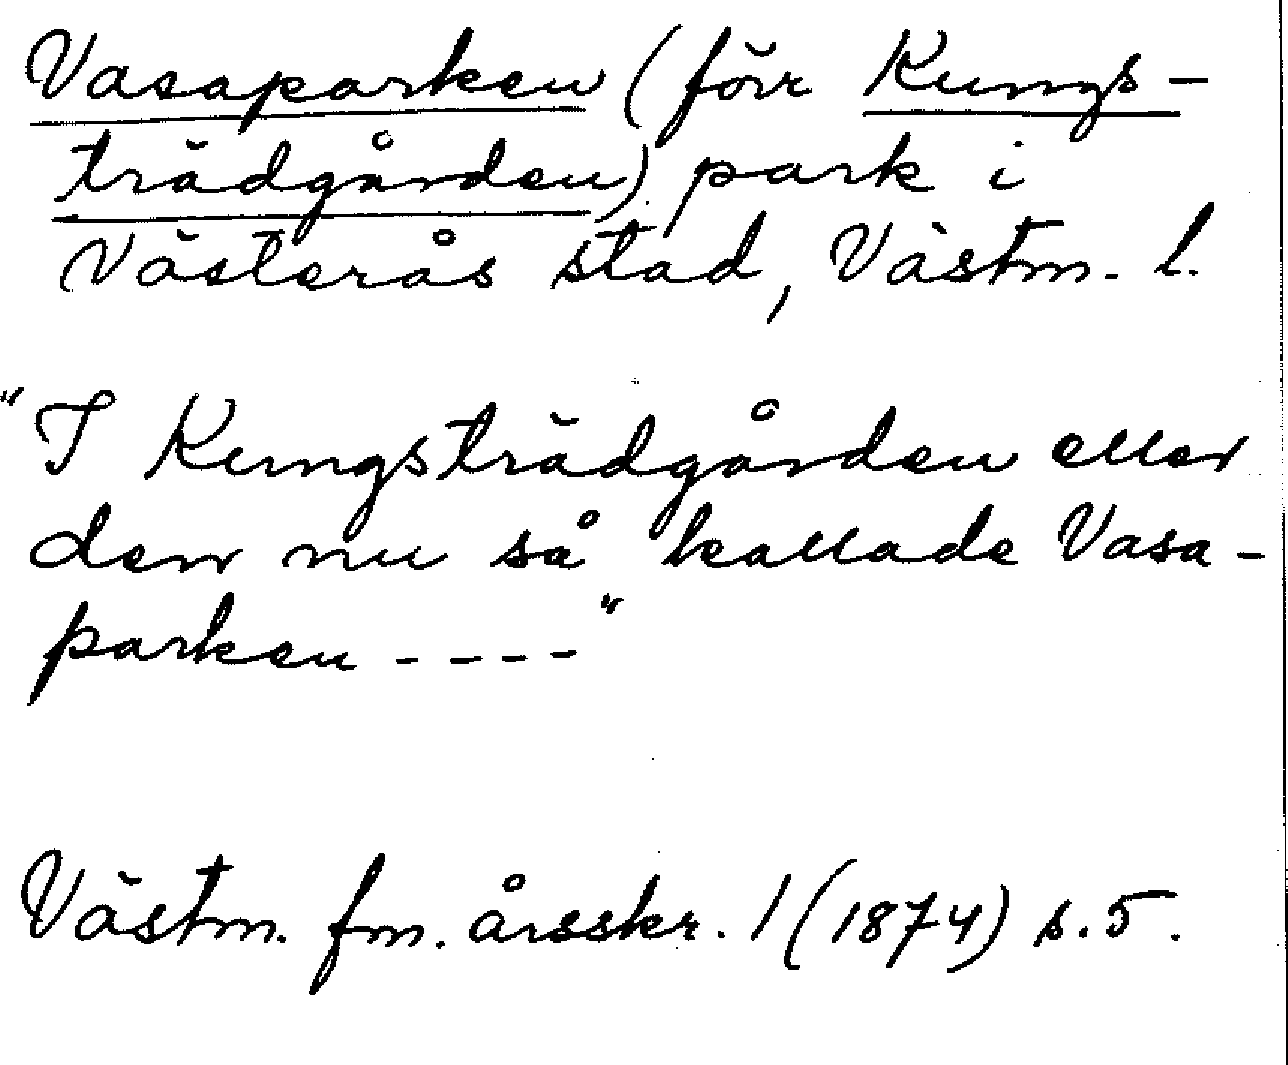 Vasaparken (förr Kungs-
trädgården) park i
Västerås stad, Västm. l.
"I Kungsträdgården eller
den nu så kallade Vasa-
parken - - - -"
Västm. fm. årsskr. 1 (1874) s. 5.